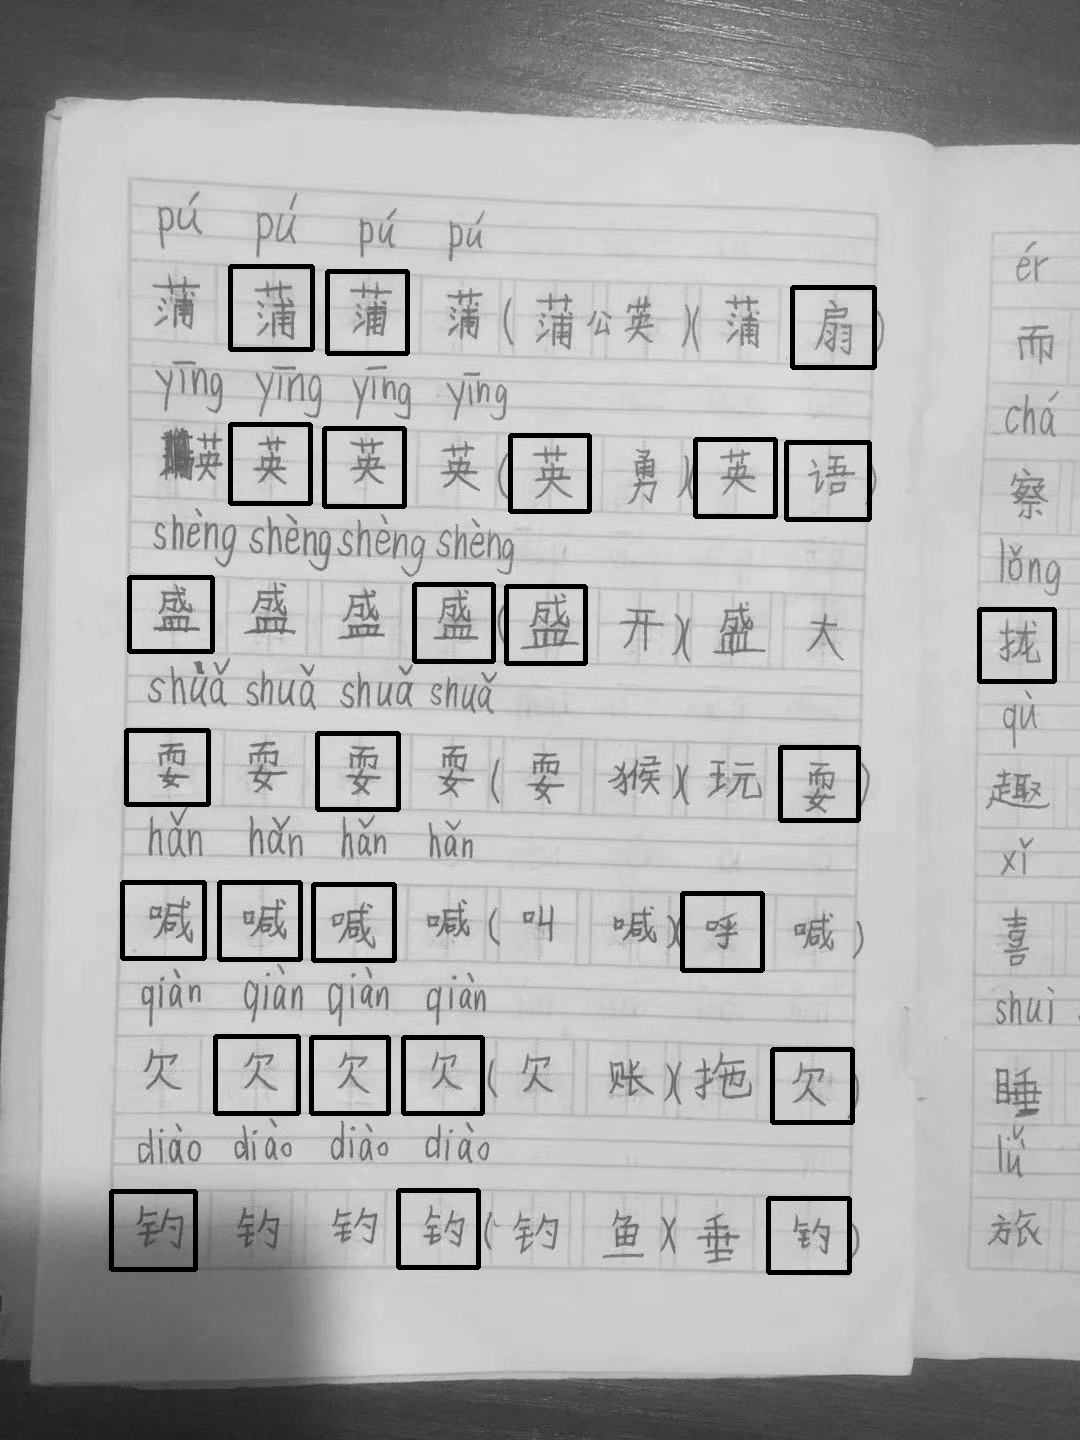 pú pú pú pú
蒲 蒲 蒲 蒲(蒲公英)(蒲扇)
yīng yīng yīng yīng
英 英 英 英(英勇)(英语)
shèng shèng shèng shèng
盛 盛 盛 盛(盛开)(盛大
shuǎ shuǎ shuǎ shuǎ
耍 耍 耍 耍(耍猴)(玩耍)
hǎn hǎn hǎn hǎn
喊 喊 喊 喊(叫喊)(呼喊)
qiàn qiàn qiàn qiàn
欠 欠 欠 欠(欠账)(拖欠)
diào diào diào diào
钓 钓 钓 钓(钓鱼)(垂钓)
ér
而
chá
察
lǒng
拢
qù
趣
xǐ
喜
shuì
睡
lǚ
旅